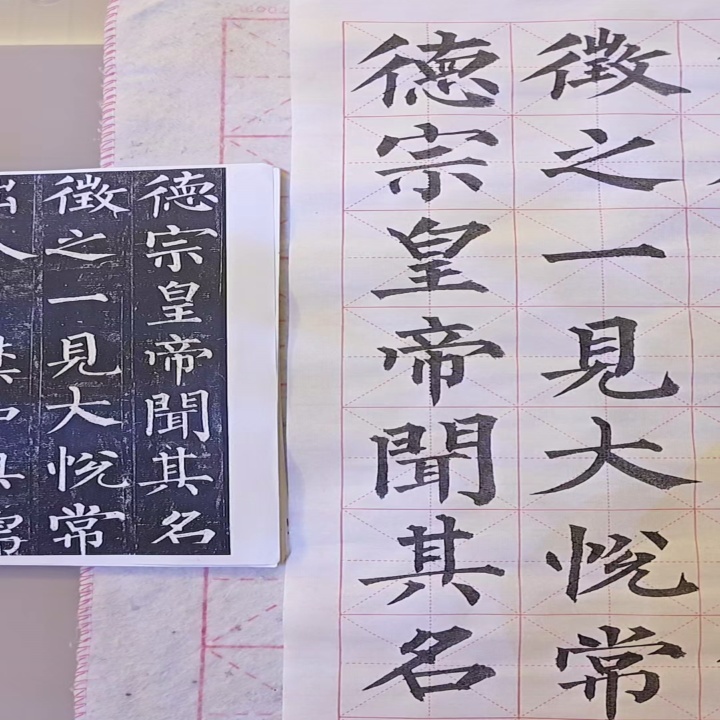 德宗皇帝聞其名
徵之一見大悅常
德宗皇帝聞其名
徵之一見大悅常